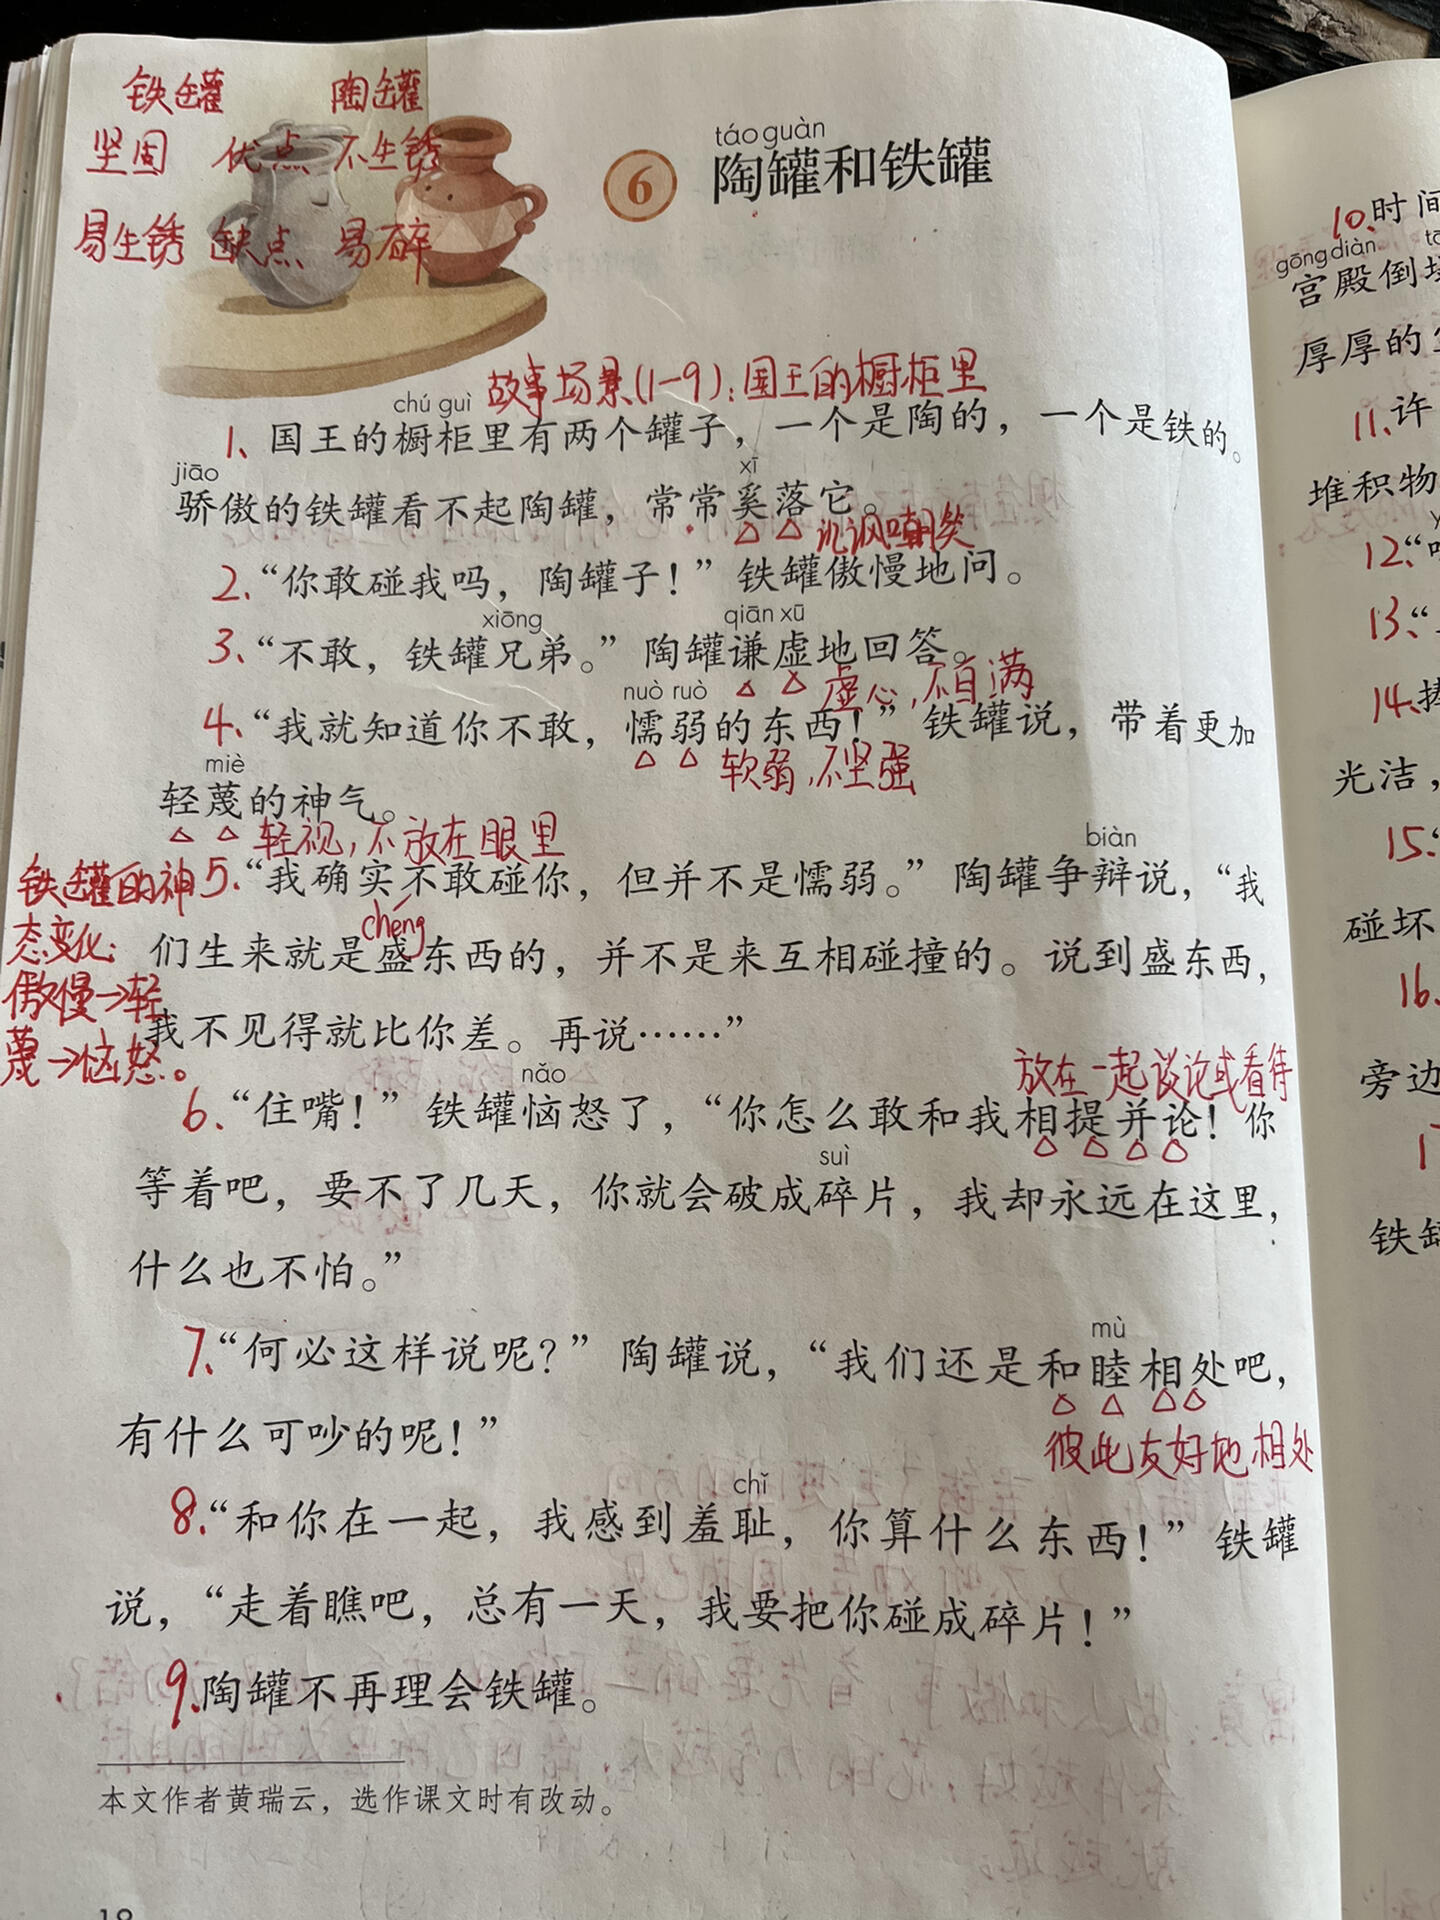 铁罐 陶罐
坚固 优点 不生锈
易生锈 缺点 易碎
táo guàn
6 陶罐和铁罐
故事场景(1-9)：国王的橱柜里
chú guì
1、国王的橱柜里有两个罐子，一个是陶的，一个是铁的。
jiāo xī
骄傲的铁罐看不起陶罐，常常奚落它。
讥讽嘲笑
2、“你敢碰我吗，陶罐子！”铁罐傲慢地问。
xiōng qiān xū
3、“不敢，铁罐兄弟。”陶罐谦虚地回答。
虚心，不自满
nuò ruò
4、“我就知道你不敢，懦弱的东西！”铁罐说，带着更加
软弱，不坚强
miè
轻蔑的神气。
轻视，不放在眼里
biàn
5、“我确实不敢碰你，但并不是懦弱。”陶罐争辩说，“我
chéng
们生来就是盛东西的，并不是来互相碰撞的。说到盛东西，
我不见得就比你差。再说……”
铁罐的神
态变化：
傲慢→轻
蔑→恼怒。
放在一起谈论或看待
nǎo
6、“住嘴！”铁罐恼怒了，“你怎么敢和我相提并论！你
suì
等着吧，要不了几天，你就会破成碎片，我却永远在这里，
什么也不怕。”
mù
7、“何必这样说呢？”陶罐说，“我们还是和睦相处吧，
彼此友好地相处
有什么可吵的呢！”
chǐ
8、“和你在一起，我感到羞耻，你算什么东西！”铁罐
说，“走着瞧吧，总有一天，我要把你碰成碎片！”
9、陶罐不再理会铁罐。
本文作者黄瑞云，选作课文时有改动。
10、时间
gōng diàn
宫殿倒
厚厚的
11、许
堆积物
12、“
13、“
14、
光洁，
15、“
碰坏
16、
旁边
铁